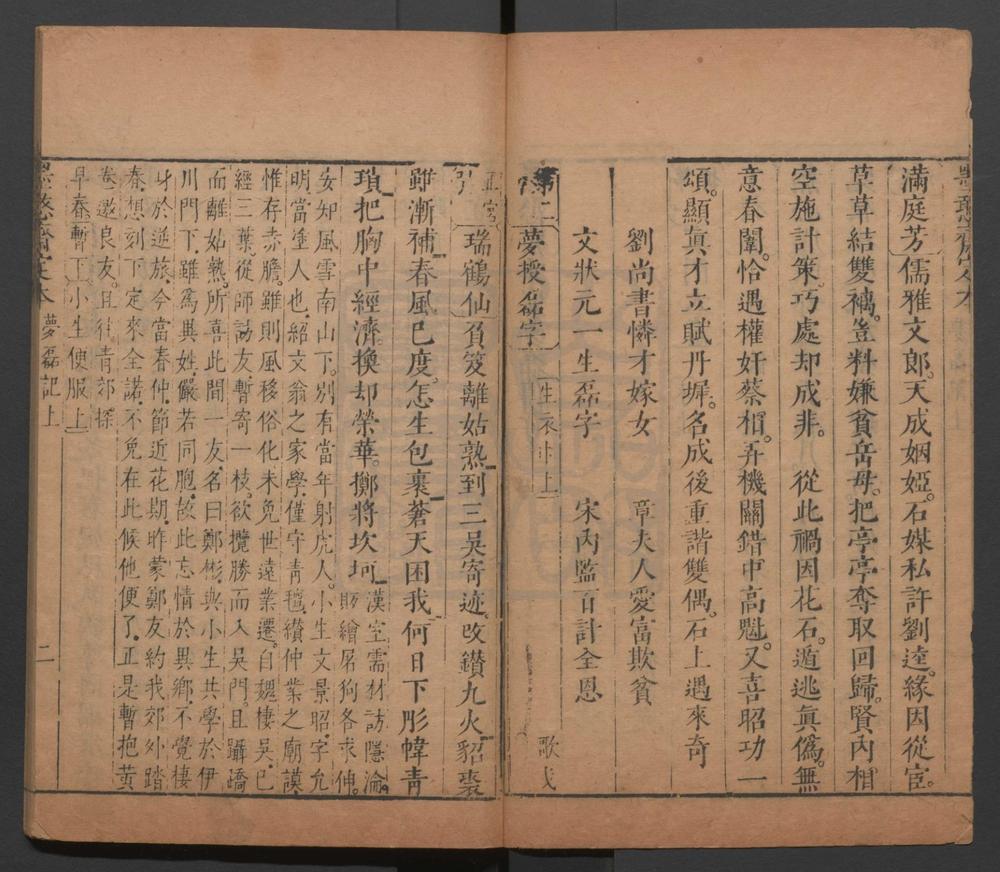 墨憨齋定本
滿庭芳儒雅文郎。天成姻婭。石媒私許劉逵。緣因從宦。
草草結雙褵。豈料嫌貧岳母。把亭亭奪取回歸。賢內相
空施計策。巧處却成非。從此禍因花石。遁逃眞僞。無
意春闈。恰遇權奸蔡相。弄機關錯中高魁。又喜昭功一
頌。顯眞才立賦丹墀。名成後重諧雙偶。石上遇來奇
劉尚書憐才嫁女 章夫人愛富欺貧
文狀元一生磊字 宋內監百計全恩
第二 夢授磊字 生衣巾上 歌戈
正宮引 瑞鶴仙 負笈離姑熟。到三吳寄迹。改鑽九火。貂裘
雖漸補。春風已度。怎生包裹。蒼天困我。何日下彤幃靑
瑣。把胸中經濟。換却榮華。擲將坎坷 漢室需材訪隱淪。販繒屠狗各求伸。
安知風雪南山下。別有當年射虎人。小生文景昭。字允
明。當塗人也。紹文翁之家學。僅守靑氊。纘仲業之廟謨。
惟存赤膽。雖則風移俗化。未免世遠業遷。自魏棲吳。已
經三葉。從師訪友。暫寄一枝。欲攬勝而入吳門。且躡蹻
而離姑熟。所喜此間一友。名曰鄭彬。與小生共學於伊
川門下。雖爲異姓。儼若同胞。故此忘情於異鄉。不覺棲
身於逆旅。今當春仲。節近花期。昨蒙鄭友約我郊外踏
春。想刻下定來全諾。不免在此候他便了。正是暫抱黃
卷邀良友。且往靑郊探
早春 暫下 小生便服上
墨憨齋定本 夢磊記上 二